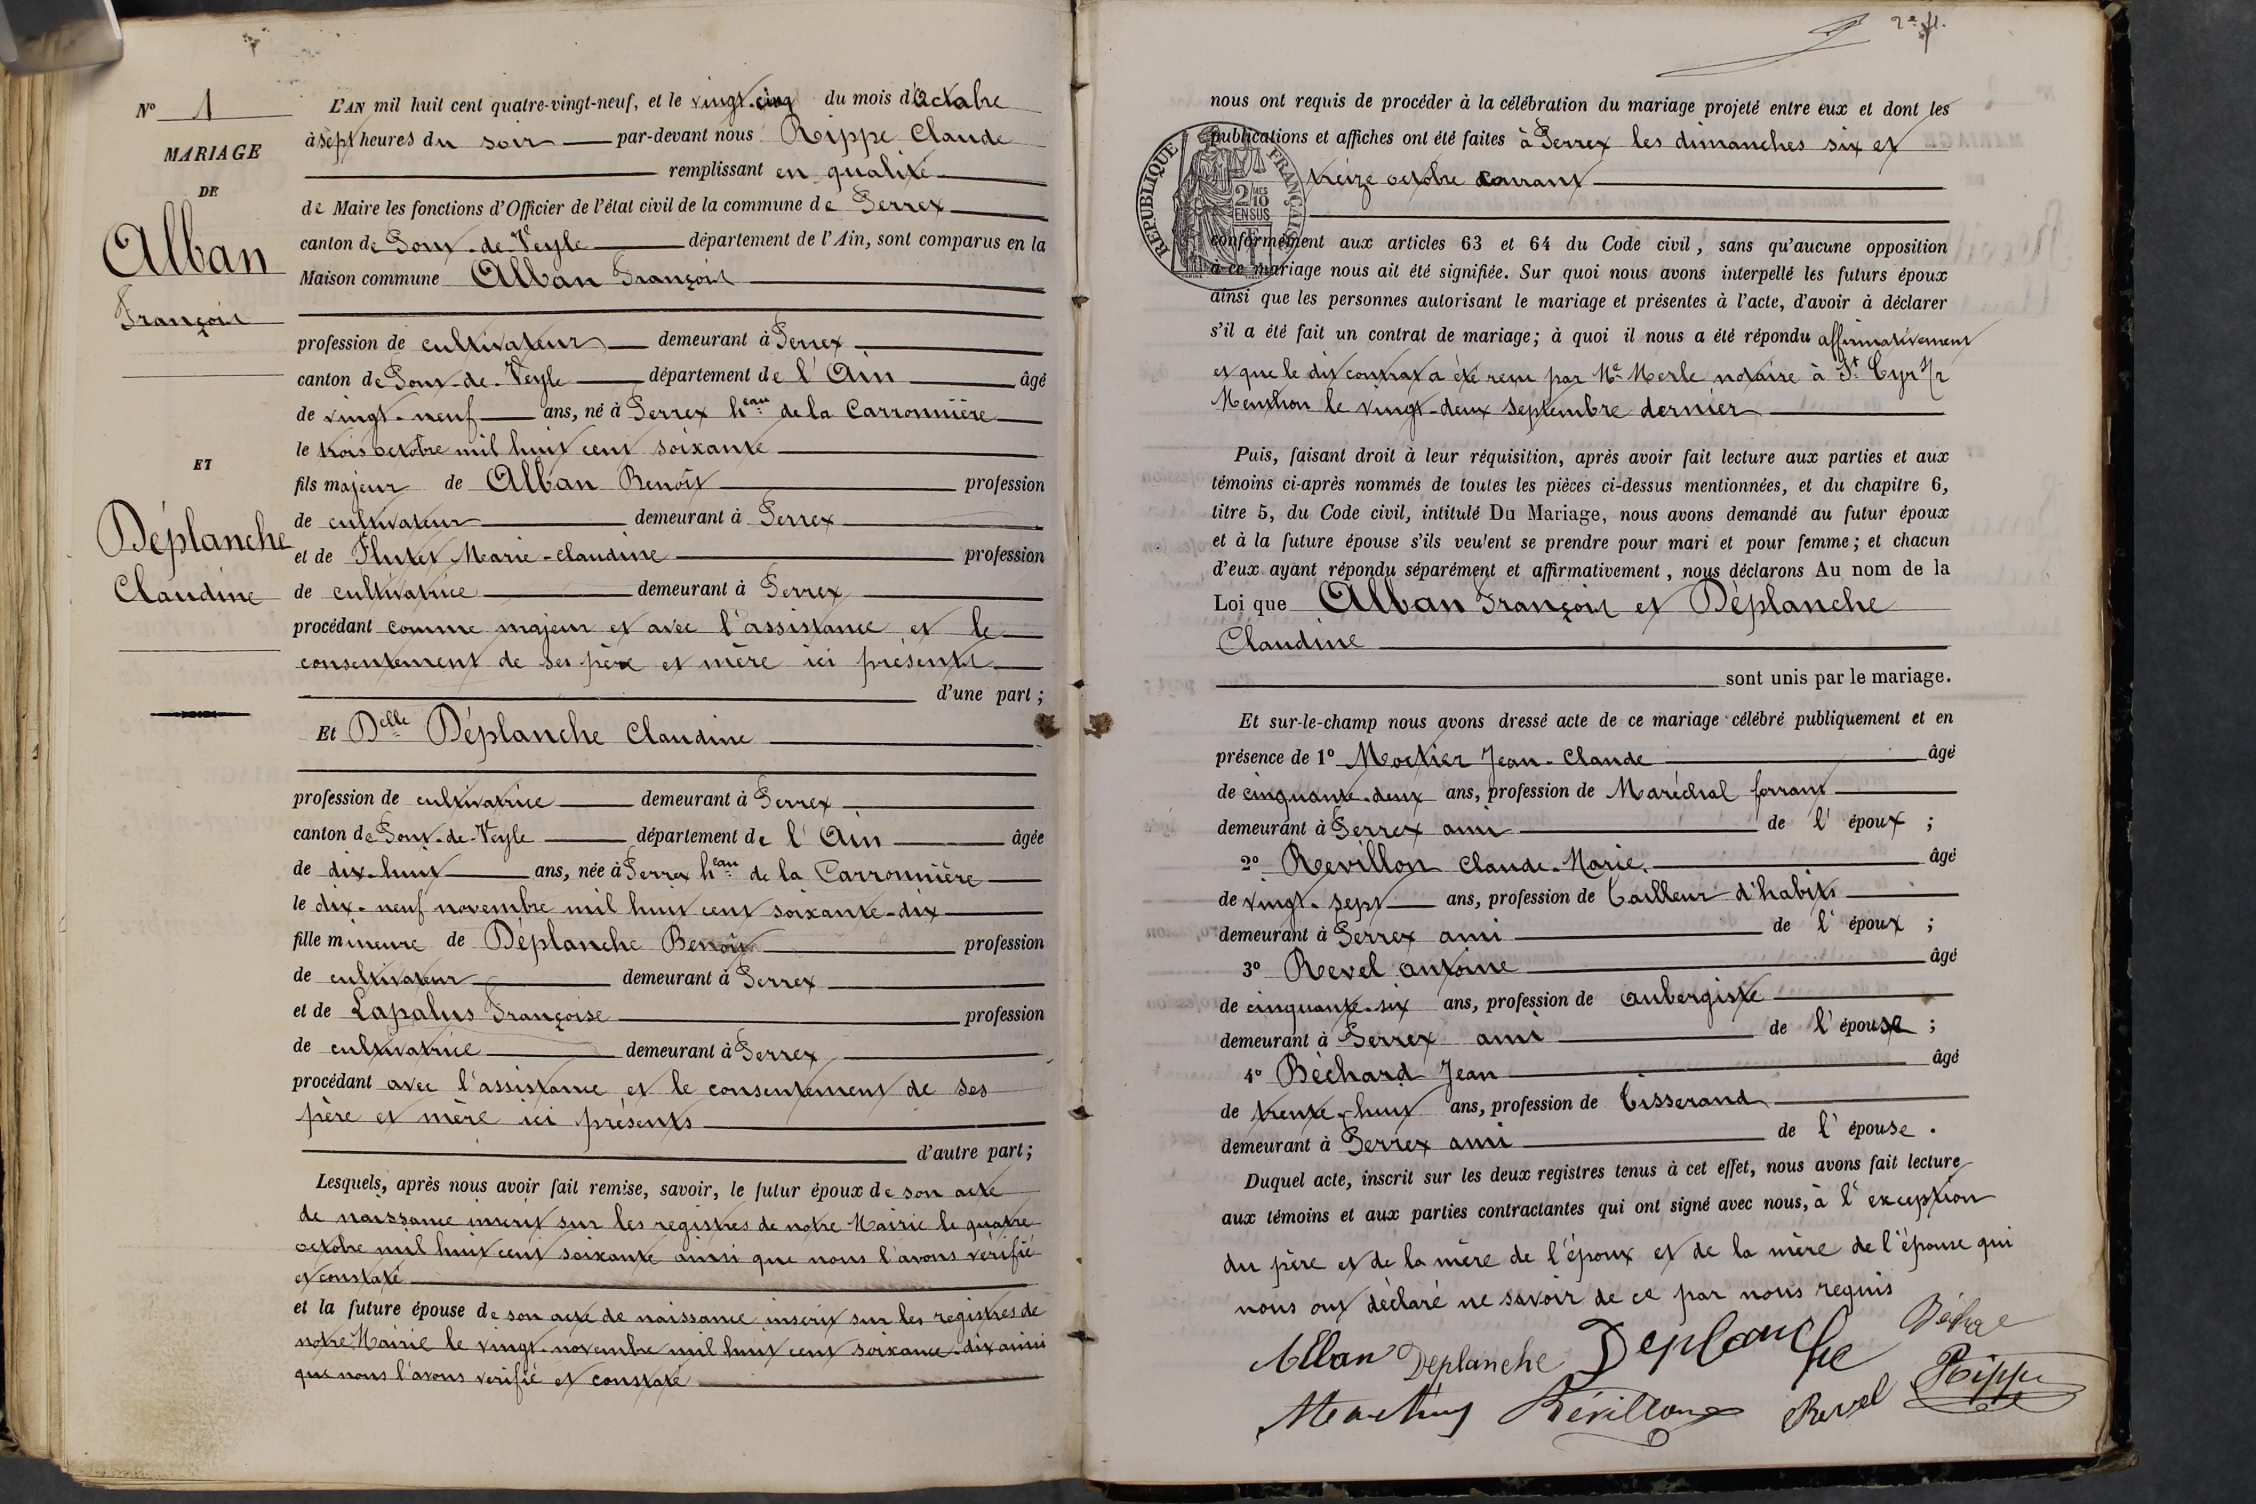 N° 1
MARIAGE
DE
Alban
François
ET
Déplanche
Claudine
L'AN mil huit cent quatre-vingt-neuf, et le vingt-cinq du mois d'Octobre
à sept heures du soir par-devant nous Rippe Claude
remplissant en qualité
de Maire les fonctions d'Officier de l'état civil de la commune de Perrex
canton de Pont-de-Veyle département de l'Ain, sont comparus en la
Maison commune Alban François
profession de cultivateur demeurant à Perrex
canton de Pont-de-Veyle département de l'Ain âgé
de vingt-neuf ans, né à Perrex heau de la Carronnière
le trois octobre mil huit cent soixante
fils majeur de Alban Benoît profession
de cultivateur demeurant à Perrex
et de Flutet Marie-Claudine profession
de cultivatrice demeurant à Perrex
procédant comme majeur et avec l'assistance et le
consentement de ses père et mère ici présents
d'une part ;
Et Delle Déplanche Claudine
profession de cultivatrice demeurant à Perrex
canton de Pont-de-Veyle département de l'Ain âgée
de dix-huit ans, née à Perrex heau de la Carronnière
le dix-neuf novembre mil huit cent soixante-dix
fille mineure de Déplanche Benoît profession
de cultivateur demeurant à Perrex
et de Lapalus Françoise profession
de cultivatrice demeurant à Perrex
procédant avec l'assistance et le consentement de ses
père et mère ici présents
d'autre part ;
Lesquels, après nous avoir fait remise, savoir, le futur époux de son acte
de naissance inscrit sur les registres de notre Mairie le quatre
octobre mil huit cent soixante ainsi que nous l'avons vérifié
et constaté
et la future épouse de son acte de naissance inscrit sur les registres de
notre Mairie le vingt-novembre mil huit cent soixante-dix ainsi
que nous l'avons vérifié et constaté
2e fl.
nous ont requis de procéder à la célébration du mariage projeté entre eux et dont les
publications et affiches ont été faites à Perrex les dimanches six et
treize octobre courant
RÉPUBLIQUE FRANÇAISE
2/10 EN SUS
conformément aux articles 63 et 64 du Code civil, sans qu'aucune opposition
à ce mariage nous ait été signifiée. Sur quoi nous avons interpellé les futurs époux
ainsi que les personnes autorisant le mariage et présentes à l'acte, d'avoir à déclarer
s'il a été fait un contrat de mariage; à quoi il nous a été répondu affirmativement
et que le dit contrat a été reçu par Me Merle notaire à St Cyr s/r
Menthon le vingt-deux septembre dernier
Puis, faisant droit à leur réquisition, après avoir fait lecture aux parties et aux
témoins ci-après nommés de toutes les pièces ci-dessus mentionnées, et du chapitre 6,
titre 5, du Code civil, intitulé Du Mariage, nous avons demandé au futur époux
et à la future épouse s'ils veulent se prendre pour mari et pour femme; et chacun
d'eux ayant répondu séparément et affirmativement, nous déclarons Au nom de la
Loi que Alban François et Déplanche
Claudine
sont unis par le mariage.
Et sur-le-champ nous avons dressé acte de ce mariage célébré publiquement et en
présence de 1° Mortier Jean-Claude âgé
de cinquante-deux ans, profession de Maréchal ferrant
demeurant à Perrex ami de l'époux ;
2° Revillon Claude-Marie âgé
de vingt-sept ans, profession de Tailleur d'habits
demeurant à Perrex ami de l'époux ;
3° Revel Antoine âgé
de cinquante-six ans, profession de aubergiste
demeurant à Perrex ami de l'épouse ;
4° Béchard Jean âgé
de trente-huit ans, profession de Tisserand
demeurant à Perrex ami de l'épouse.
Duquel acte, inscrit sur les deux registres tenus à cet effet, nous avons fait lecture
aux témoins et aux parties contractantes qui ont signé avec nous, à l'exception
du père et de la mère de l'époux et de la mère de l'épouse qui
nous ont déclaré ne savoir de ce par nous requis
Alban Deplanche Deplanche
Révillon Revel Rippe